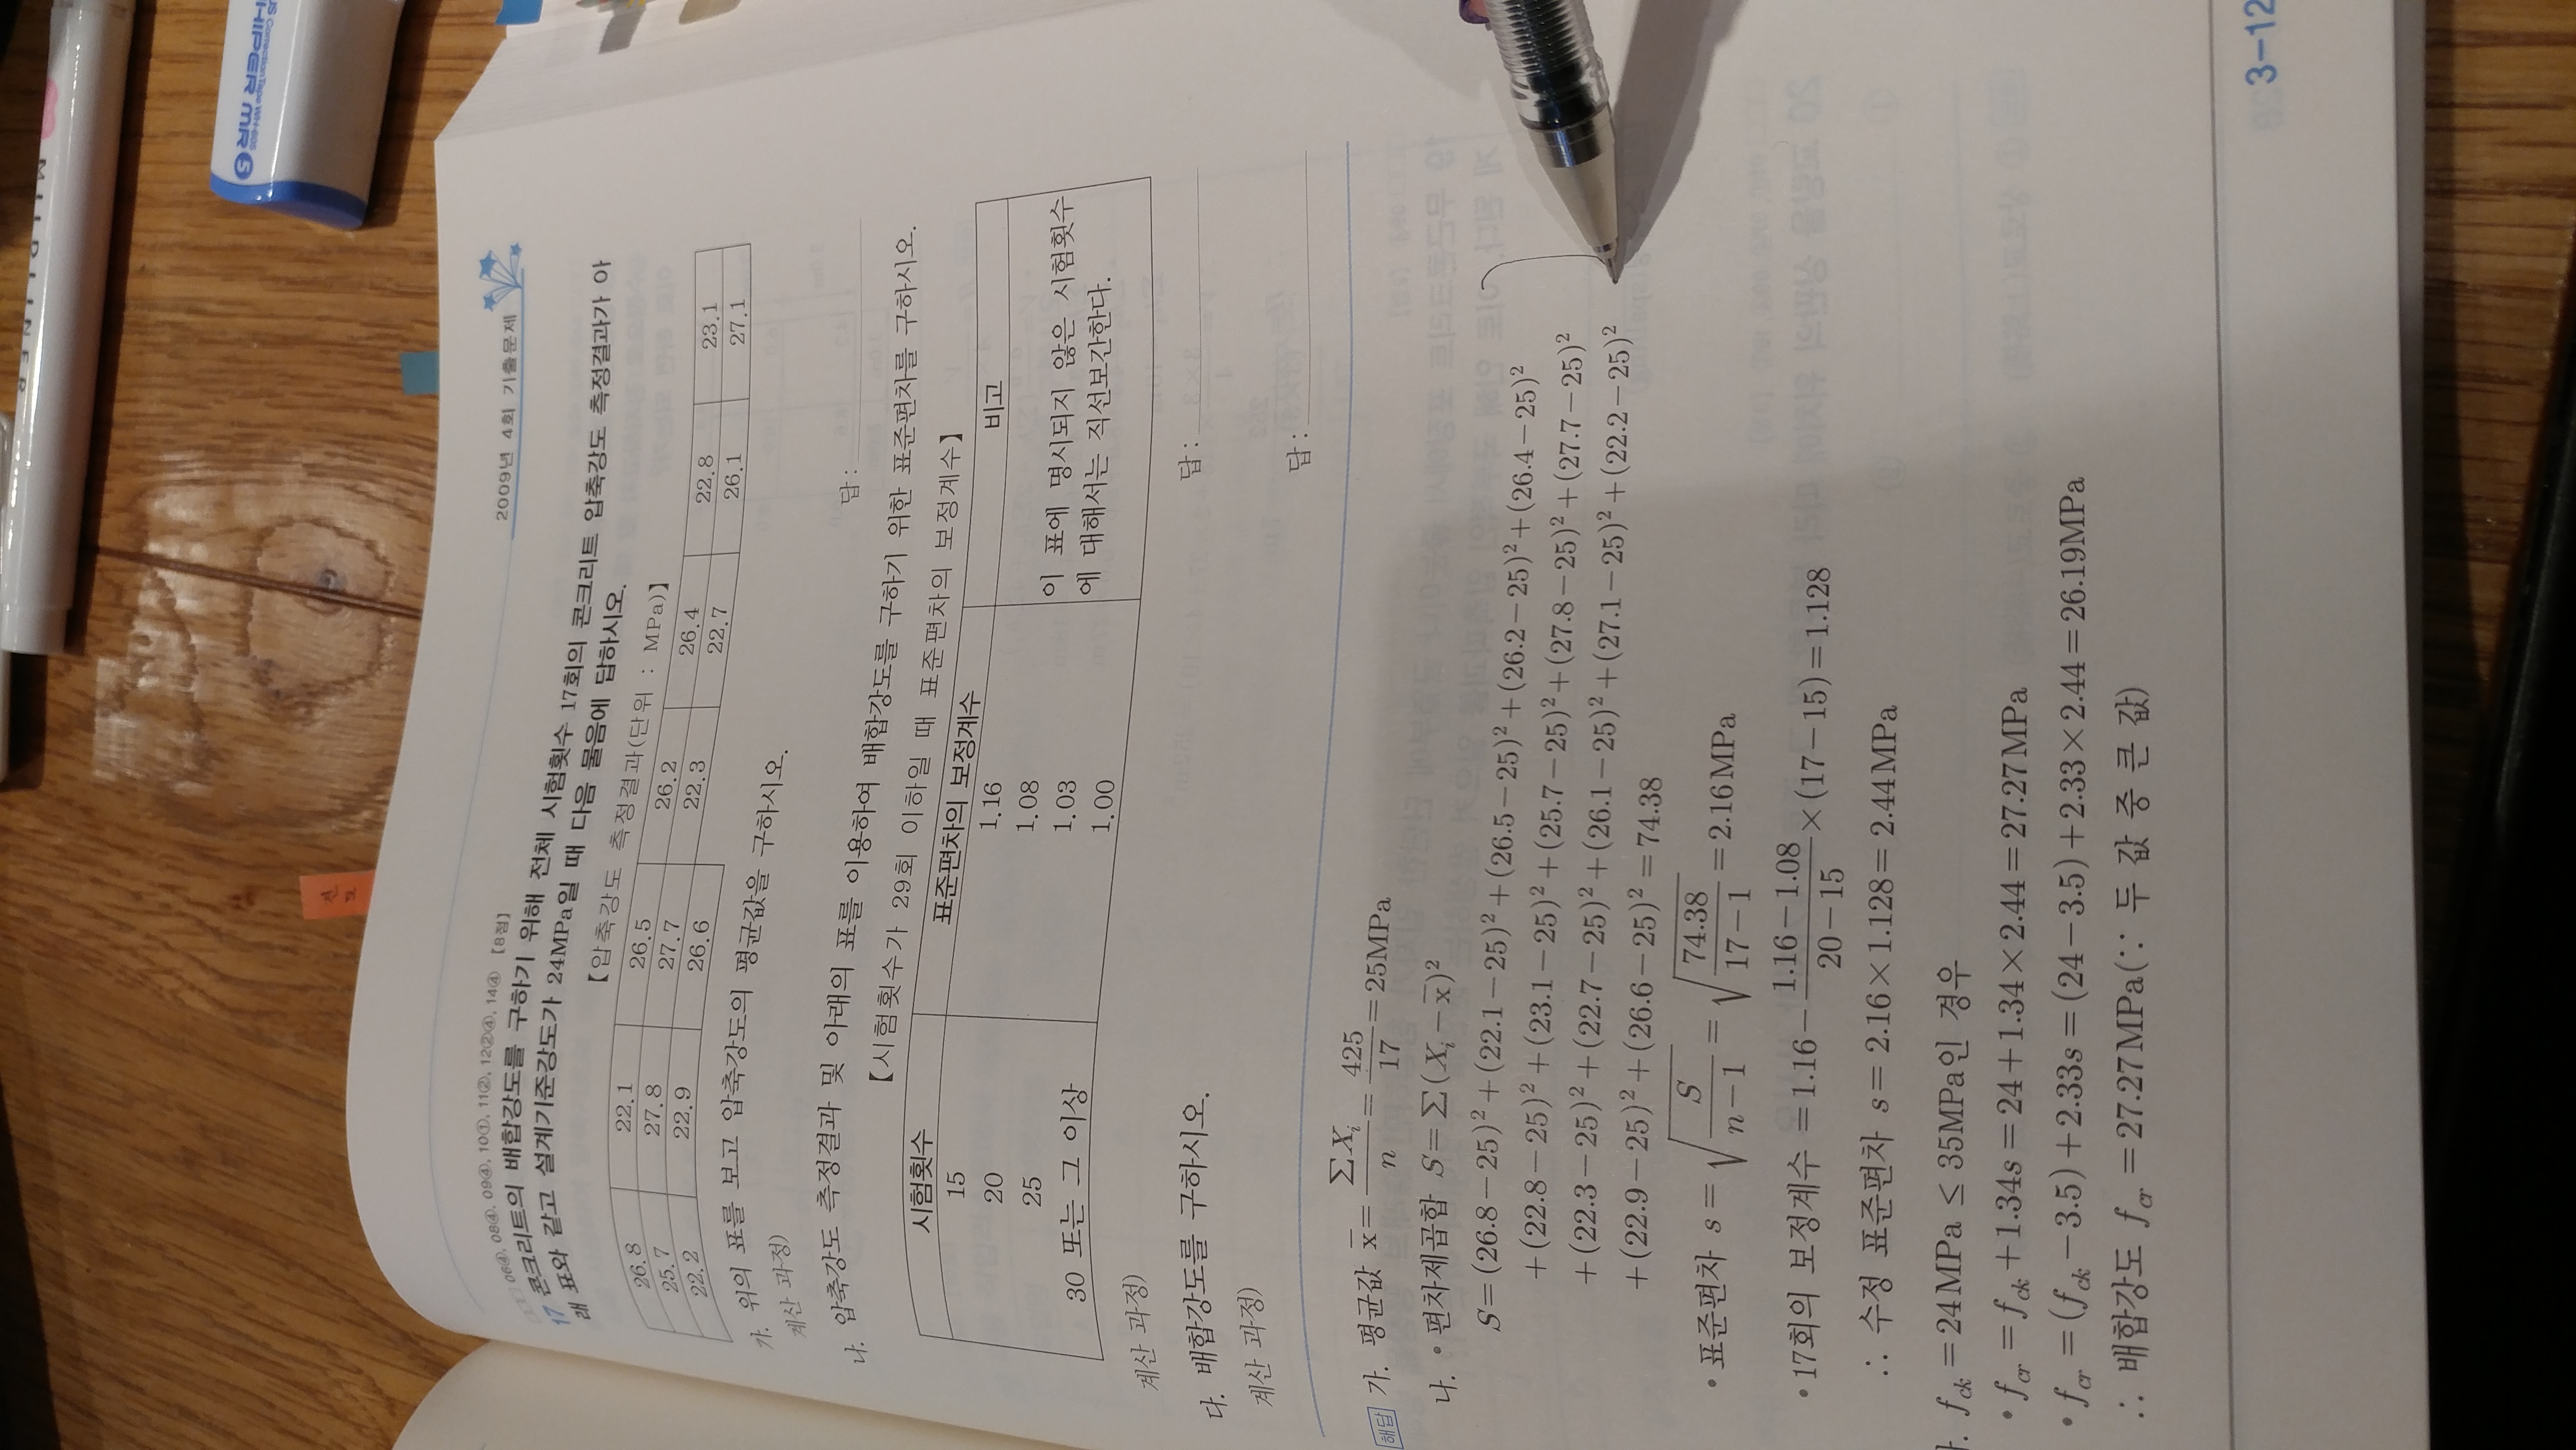 MILDLINER
US Correction Tape WH-605
WHIPER MR 5
2009년 4회 기출문제
06④, 08④, 09④, 10①, 11②, 12②④, 14④ [8점]
17 콘크리트의 배합강도를 구하기 위해 전체 시험횟수 17회의 콘크리트 압축강도 측정결과가 아
래 표와 같고 설계기준강도가 24MPa일 때 다음 물음에 답하시오.
【압축강도 측정결과(단위 : MPa)】
26.8 22.1 26.5 26.2 26.4 22.8 23.1
25.7 27.8 27.7 22.3 22.7 26.1 27.1
22.2 22.9 26.6
가. 위의 표를 보고 압축강도의 평균값을 구하시오.
계산 과정)
답 :
나. 압축강도 측정결과 및 아래의 표를 이용하여 배합강도를 구하기 위한 표준편차를 구하시오.
【시험횟수가 29회 이하일 때 표준편차의 보정계수】
시험횟수 표준편차의 보정계수 비고
15 1.16
20 1.08
25 1.03
30 또는 그 이상 1.00
이 표에 명시되지 않은 시험횟수
에 대해서는 직선보간한다.
계산 과정)
답 :
다. 배합강도를 구하시오.
계산 과정)
답 :
해답 가. 평균값 x̄ = ΣXᵢ/n = 425/17 = 25MPa
나. • 편차제곱합 S = Σ(Xᵢ − x̄)²
S = (26.8−25)² + (22.1−25)² + (26.5−25)² + (26.2−25)² + (26.4−25)²
+ (22.8−25)² + (23.1−25)² + (25.7−25)² + (27.8−25)² + (27.7−25)²
+ (22.3−25)² + (22.7−25)² + (26.1−25)² + (27.1−25)² + (22.2−25)²
+ (22.9−25)² + (26.6−25)² = 74.38
• 표준편차 s = √(S/(n−1)) = √(74.38/(17−1)) = 2.16MPa
• 17회의 보정계수 = 1.16 − (1.16−1.08)/(20−15) × (17−15) = 1.128
∴ 수정 표준편차 s = 2.16 × 1.128 = 2.44MPa
f_ck = 24MPa ≤ 35MPa인 경우
• f_cr = f_ck + 1.34s = 24 + 1.34 × 2.44 = 27.27MPa
• f_cr = (f_ck − 3.5) + 2.33s = (24 − 3.5) + 2.33 × 2.44 = 26.19MPa
∴ 배합강도 f_cr = 27.27MPa(∵ 두 값 중 큰 값)
3-12